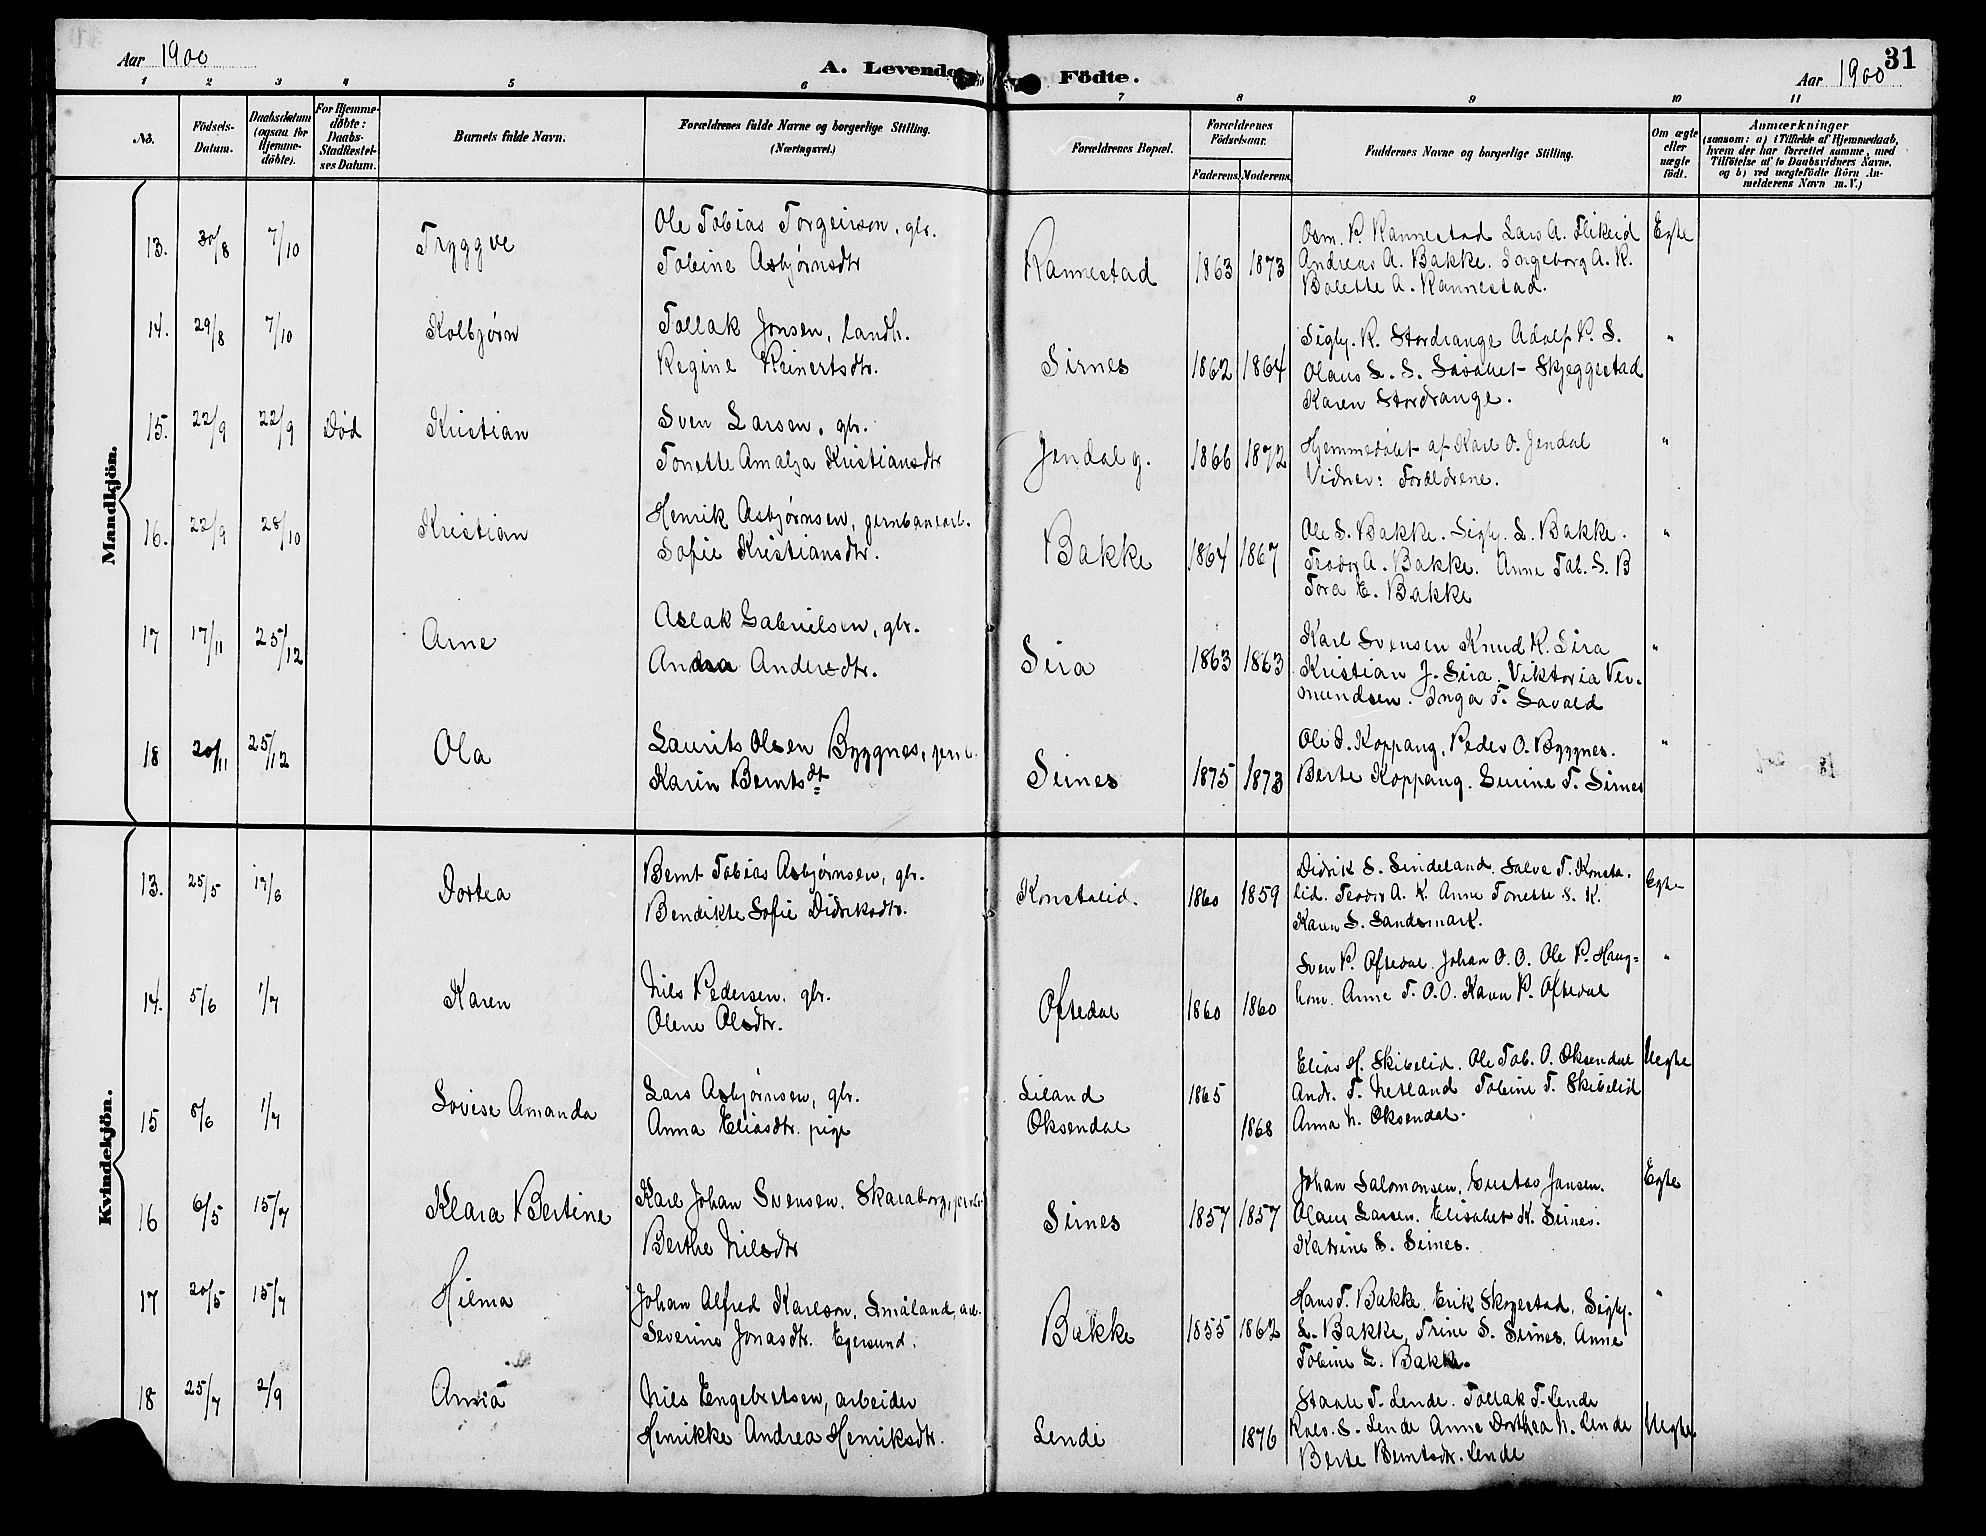 Aar 1900
A. Levende Födte.
Aar 1900
31
1 2 3 4 5 6 7 8 9 10 11
No.
Födsels-
Datum.
Daabsdatum
(ogsaa for
Hjemme-
döbte).
For Hjemme-
döbte:
Daabs-
Stadfæstel-
ses Datum.
Barnets fulde Navn.
Forældrenes fulde Navne og borgerlige Stilling.
(Næringsvei.)
Forældrenes Bopæl.
Forældrenes
Födselsaar.
Faderens. Moderens.
Faddernes Navne og borgerlige Stilling.
Om ægte
eller
uægte
födt.
Anmærkninger
(saasom: a) i Tilfælde af Hjemmedaab,
hvem der har forrettet samme, med
Tilföielse af to Daabsvidners Navne,
og b) ved uægtefödte Börn An-
melderens Navn m. V.)
Mandkjön.
13. 30/8 7/10 Tryggve
Ole Tobias Torgeirson, gbr.
Tobine Asbjørnsdtr
Rannestad 1863 1873
Osm. P. Rannestad Lars A. Flikeid
Andreas A. Bakke. Ingeborg A. R.
Bolette A. Rannestad.
Egte
14. 29/8 7/10 Kolbjørn
Tollak Jonsen, landh.
Regine Reinertsdtr.
Sirnes 1862 1864
Sigbj. R. Stordrange Adolf P. S.
Olaus L. S. Skjeggestad
Karen Stordrange.
"
15. 22/9 22/9 Død Kristian
Sven Larsen, gbr.
Tonette Amalja Kristiansdtr
Jendal g. 1866 1872
Hjemmedøbt af Karl O. Jendal
Vidner: Forældrene.
"
16. 22/9 28/10 Kristian
Henrik Asbjørnsen, jernbanearb.
Sofie Kristiansdtr.
Bakke 1864 1867
Ole S. Bakke. Sigbj. L. Bakke.
Teodor A. Bakke. Anne Tob. S. B
Tora E. Bakke
"
17 17/11 25/12 Arne
Aslak Gabrielsen, gbr.
Andrea Andersdtr.
Sira 1863 1863
Karl Svensen Knud K. Sira
Kristian J. Sira. Viktoria Ver-
mundsen. Inga T. Lavold
"
18 20/11 25/12 Ola
Laurits Olsen Byggnes,
Karin Berntsdt
Sirnes 1875 1873
Ole J. Koppang, Peder O. Byggnes.
Berte Koppang. Surine T. Sirnes
"
Kvindekjön.
13. 25/5 17/6 Dortea
Bernt Tobias Asbjørnsen, gbr.
Bendikte Sofie Didriksdtr.
Konstalid. 1860 1859
Didrik S. Sindeland. Salve T. Konsta-
lid. Teodor A. K. Anne Tonette S. K.
Karen S. Sandsmark.
Egte
14. 5/6 1/7 Karen
Nils Pedersen, gbr.
Olene Olsdtr.
Oftedal 1860 1860
Sven P. Oftedal. Johan O. O. Ole P. Haug-
hom. Anne T. O. O. Karen P. Oftedal
"
15 5/6 1/7 Lovise Amanda
Lars Asbjørnsen, gbr.
Anna Eliasdtr. pige
Liland 1865
Øksendal 1868
Elias H. Skibelid. Ole Tob. O. Øksendal
Andr. T. Netland Tobine T. Skibelid
Anna N. Øksendal.
Uegte
16 6/5 15/7 Klara Bertine
Karl Johan Svensen. Skaraborg,
Berthe Nilsdtr
Sirnes 1857 1857
Johan Salomonsen, Gustav Jansen.
Olaus Larsen. Elisabet K. Sirnes.
Katrine S. Sirnes.
Egte
17 20/5 15/7 Hilma
Johan Alfred Karlson, Småland, arb.
Severine Jonasdtr. Egersund.
Bakke 1855 1862
Hans T. Bakke, Erik Skogestad, Sigbj.
L. Bakke, Trine S. Sirnes, Anne
Tobine L. Bakke.
"
18 25/7 2/9 Anna
Nils Engebretsen, arbeider
Henrikke Andrea Henriksdtr.
Lende 1876
Staale T. Lende. Tollak T. Lende
S. Lende Anne Dorthea N. Lende
Berte Berntsdtr. Lende
Uegte